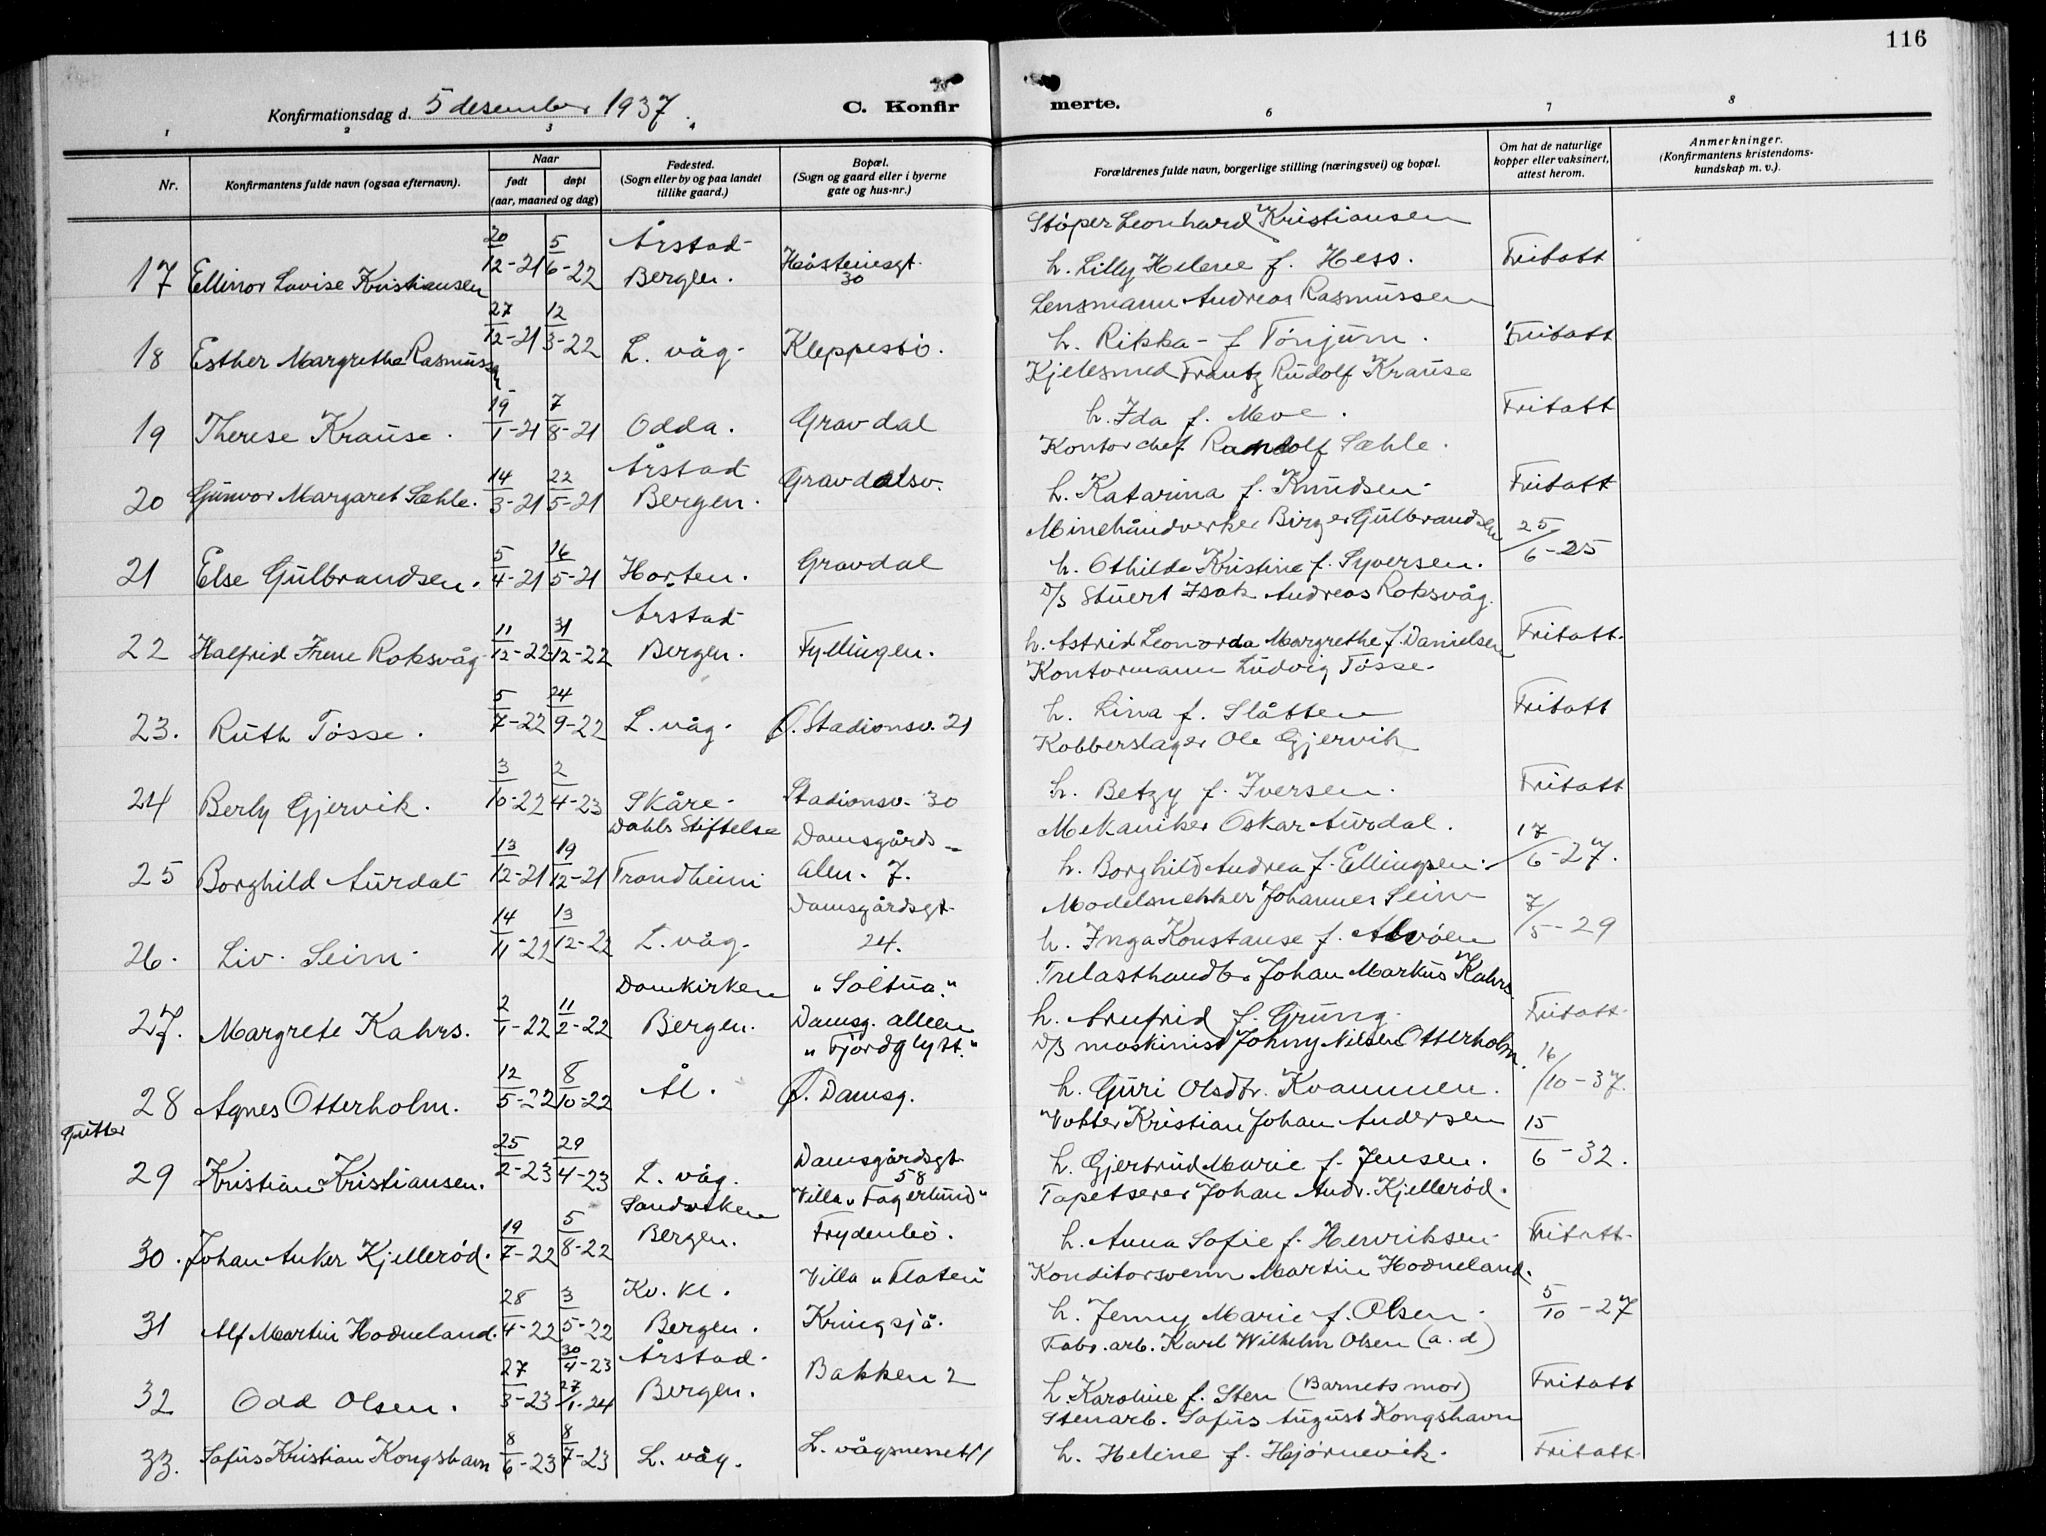 116
Konfirmationsdag d. 5 desember 1937.
C. Konfirmerte.
1 2 3 4 6 7 8
Nr.
Konfirmantens fulde navn (ogsaa efternavn).
Naar
født
døpt
(aar, maaned og dag)
Fødested.
(Sogn eller by og paa landet
tillike gaard.)
Bopæl.
(Sogn og gaard eller i byerne
gate og hus-nr.)
Forældrenes fulde navn, borgerlige stilling (næringsvei) og bopæl.
Om hat de naturlige
kopper eller vaksinert,
attest herom.
Anmerkninger.
(Konfirmantens kristendoms-
kundskap m. v.).
17 Ellinor Lovise Kristiansen 20/12-21 5/6-22 Årstad Bergen. Håsteinsgt. 30
Støper Leonhard Kristiansen
h. Lilly Helene f. Hess. Fritatt
18 Esther Margrethe Rasmussen 27/12-21 12/3-22 L. våg. Kleppestø.
Lensmann Andreas Rasmussen
h. Rikka f. Tønjum. Fritatt
19 Therese Krause. 19/1-21 7/8-21 Odda. Gravdal
Kjelesmed Frantz Rudolf Krause
h. Ida f. Meve. Fritatt
20 Gunvor Margaret Sæhle. 14/3-21 22/5-21 Årstad Bergen. Gravdalsv.
Kontorchef Randolf Sæhle.
h. Katarina f. Knudsen Fritatt
21 Else Gulbrandsen. 5/4-21 16/5-21 Horten. Gravdal
Minehåndverker Birger Gulbrandsen
h. Othilde Kristine f. Syversen. 25/6-25
22 Halfrid Irene Roksvåg 11/12-22 31/12-22 Årstad Bergen. Fyllingen.
D/S Stuert Isak Andreas Roksvåg.
h. Astrid Leonorda Margrethe f. Danielsen Fritatt.
23. Ruth Tøsse. 5/7-22 24/9-22 L. våg. Ø. Stadionsv. 21
Kontormann Ludvig Tøsse.
h. Lina f. Slåtten Fritatt
24 Berly Gjervik. 3/10-22 2/4-23 Skåre. Stadionsv. 30
Kobberslager Ole Gjervik
h. Betzy f. Iversen. Fritatt
25 Borghild Aurdal 13/12-21 19/12-21 Dahls Stiftelse Trondheim Damsgårds-alen. 7.
Mekaniker Oskar Aurdal.
h. Borghild Andrea f. Ellingsen. 17/6-27.
26. Liv. Seim. 14/11-22 13/12-22 L. våg. Damsgårdsgt. 24.
Modelsnekker Johannes Seim
h. Inga Konstanse f. Alvøen 7/5-29
27. Margrete Kahrs. 2/1-22 11/2-22 Domkirken Bergen. "Soltua." Damsg. alleen
Trelasthandler Johan Markus Kahrs.
h. Arnfrid f. Grung. Fritatt.
28 Agnes Otterholm. 12/5-22 8/10-22 Ål. "Fjordglytt." Ø. Damsg.
D/S maskinist Johny Nilsen Otterholm.
h. Guri Olsdtr. Kvammen. 16/10-37.
Gutter
29 Kristian Kristiansen. 25/2-23 29/4-23 L. våg. Damsgårdsgt. 58
Vokter Kristian Johan Andersen
h. Gjertrud Marie f. Jensen. 15/6-32.
30. Johan Anker Kjellerød. 19/7-22 5/8-22 Sandviken Bergen. Villa "Fagerlund" Frydenbø.
Tapetserer Johan Andr. Kjellerød.
h. Anna Sofie f. Henriksen Fritatt.
31 Alf Martin Hodneland. 28/4-22 3/5-22 Kv. kl. Bergen. Villa "Flaten" Kringsjå.
Konditorsvenn Martin Hodneland.
h. Jenny Marie f. Olsen. 5/10-27
32 Odd Olsen. 27/3-23 30/4-23 27/1-24 Årstad. Bergen. Bakken 2
Fabr. arb. Karl Wilhelm Olsen (a. d)
h. Karoline f. Sten (Barnets mor) Fritatt
33. Sofus Kristian Kongshavn 8/6-23 8/7-23 L. våg. L. vågsneset 11
Stenarb. Sofus August Kongshavn
h. Heline f. Hjørnevik. Fritatt